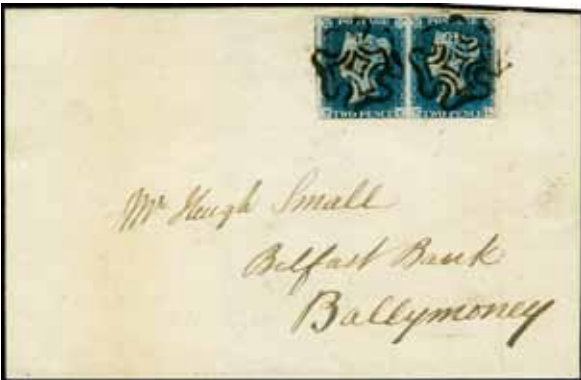 POSTAGE POSTAGE
TWO PENCE TWO PENCE
Mr Hugh Small
Belfast Bank
Ballymoney